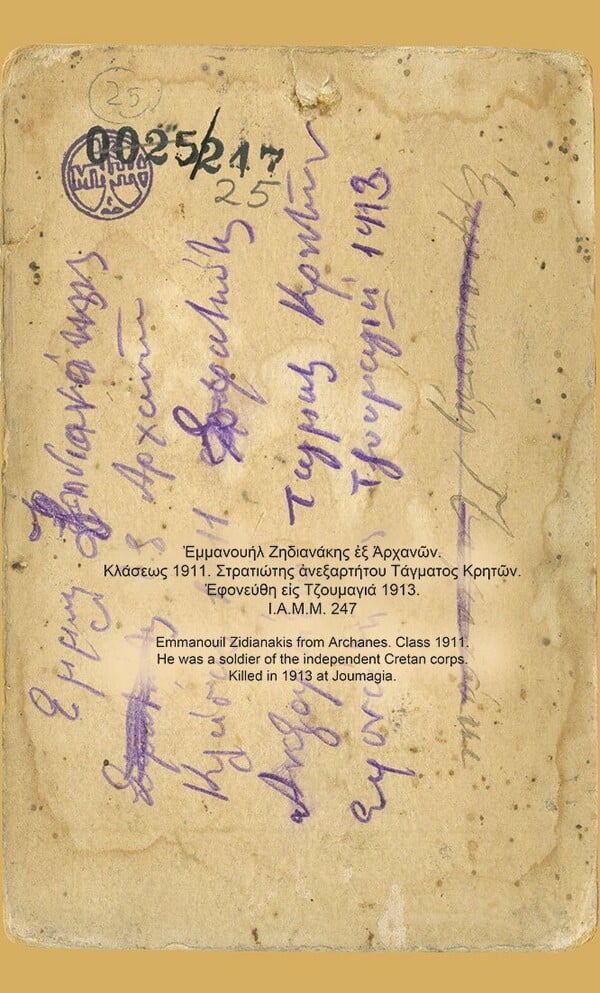 25
0025/247
25
Εμμαν Ζηδιανάκης
ἐξ Αρχανῶν
Κλάσεως 1911 Στρατιώτης
Ανεξαρ Τάγματος Κρητῶν
Εφονεύθη Τζουμαγιά 1913
Ἐμμανουήλ Ζηδιανάκης ἐξ Ἀρχανῶν.
Κλάσεως 1911. Στρατιώτης ἀνεξαρτήτου Τάγματος Κρητῶν.
Ἐφονεύθη εἰς Τζουμαγιά 1913.
Ι.Α.Μ.Μ. 247
Emmanouil Zidianakis from Archanes. Class 1911.
He was a soldier of the independent Cretan corps.
Killed in 1913 at Joumagia.